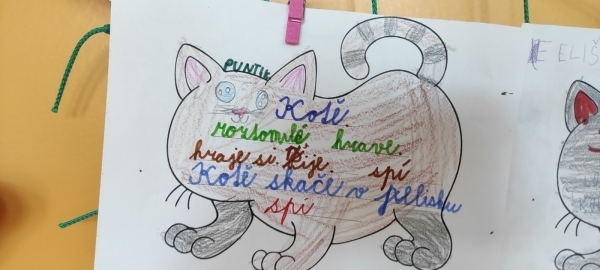 PUNTÍK
Kotě
roztomilé hravé
hraje si žije spí
Kotě skáče v pelíšku
spí
ELIŠ